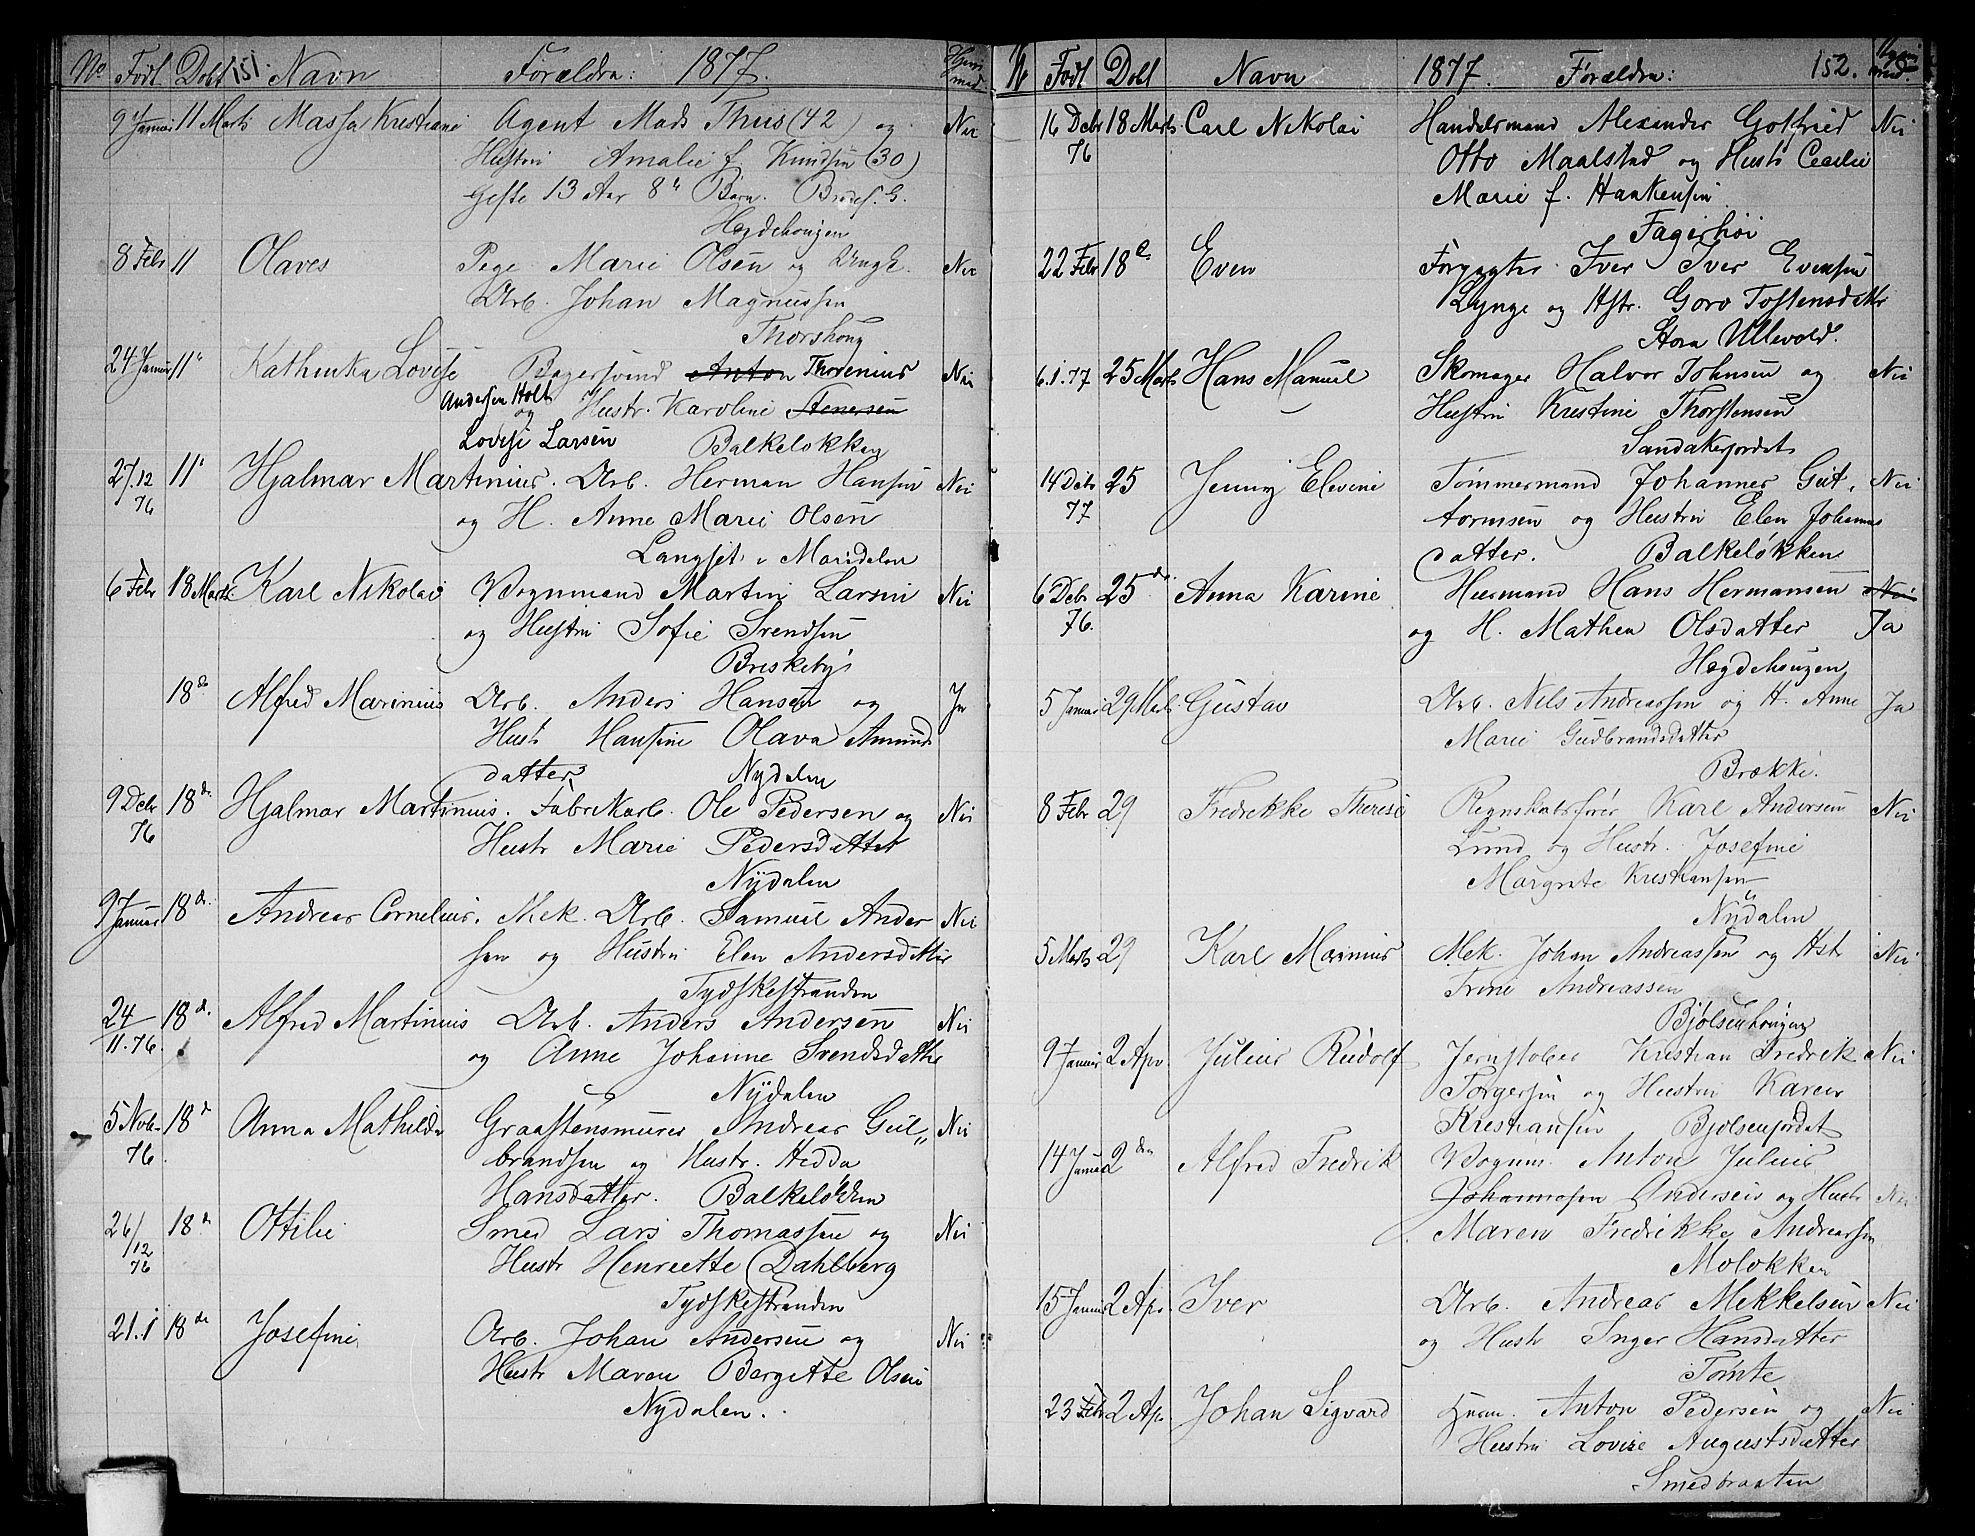 No Født Døbt 151. Navn Forældra: 1877. Hjem med
9 Januar 11 Marts Massa Kristiane Agent Mads Thiis (42) og Nei
Hustru Amalie f. Knudsen (30)
Gifte 13 Aar 8 Børn.
Hegdehougen
8 Febr 11 Olaves Pige Marie Olsen og Ungk. Nei
Arb. Johan Magnussen
Thorshoug
24 Januar 11 Kathinka Lovise Bagersvend Anton Thorenius Nei
Andersen Holt og Hustr. Karoline Stenersen
Lovise Larsen Balkeløkken
27/12 11 Hjalmar Martinius. Arb. Herman Hansen Nei
76 og H. Anne Marie Olsen
Langset i Maridalen
6 Febr 18 Marts Karl Nikolai Vognmand Martin Larsen Nei
og Hustru Sofie Svendsen
Briskeby
18 do Alfred Marinius Arb. Anders Hansen og Ja
Hustr Hansine Olava Amunds
datter Nydalen
9 Debr 18 do. Hjalmar Martinius. Fabrikarb. Ole Pedersen og Nei
76 Hustr Marie Pedersdatter
Nydalen
9 Januar 18 d. Andreas Cornelius. Mek. Arb. Samuel Ander Nei
sen og Hustru Elen Andersdatter
Tydskestranden
24 18 d. Alfred Martinius Arb. Anders Andersen Nei
11.76. og Anne Johanne Svendsdatter
Nydalen
5 Nvbr 18 d Anna Mathilde Graastensmurer Andreas Gul„ Nei
76. brandsen og Hustr. Hedda
Hansdatter. Balkeløkken
26/12 18 d Ottilie Smed Lars Thomassen og Nei
76 Hustr Henriette Dahlberg
Tydskestranden
21.1 18 do Josefine Arb. Johan Andersen og Nei
Hustr Maren Bergitte Olsen
Nydalen.
N Født Døbt Navn 1877. Forældra: 152. Hjem med.
16 Debr 18 Marts Carl Nikolai Handelsmand Alexander Gotfried Nei
76 Otto Maalstad og Hustr Cecilie
Marie f. Haakensen
Fagerhøi
22 Febr 18 Even Forpagter Iver Iver Evensen
Lynge og Hstr. Goro Tostensdatter
Store Ullevold.
6.1.77 25 Marts Hans Manuel Skomager Halvor Johnsen og Nei
Hustru Kristine Thorstensen
Sandakerjordet
14 Debr 25 Jenny Elevine Tømmermand Johannes Gut. Nei
77 tormsen og Hustru Elen Johannes
datter. Balkeløkken
6 Debr 25 do. Anna Karine Husmand Hans Hermansen Nei
76. og H. Mathea Olsdatter Ja
Hegdehaugen
5 Januar 29 Marts Gustav Arb. Nils Andreassen og H. Anne Ja
Marie Gudbrandsdatter
Brække.
8 Febr 29 Fredrikke Therese Regnskabsfører Karl Andersen Nei
Lund og Hustr. Josefine
Margrete Kristiansen
Nydalen
5 Marts 29 Karl Marinius Mek. Johan Andreassen og Hstr Nei
Trine Andreassen
Bjølsenhougen
9 Januar 2 Apr Julius Rudolf Jernstøber Kristian Fredrik Nei
Torgersen og Hustru Karen
Kristiansen Bjølsenjordet
14 Januar 2 den Alfred Fredrik Vognm. Anton Julius
Johannesen Andersen og Hustr Nei
Maren Fredrikke Andreassen
Moløkken
15 Januar 2 Apr. Iver Arb. Andreas Mekkelsen Nei
og Hustr Inger Hansdatter
Tømte
23 Febr 2 Apr Johan Sigvard Husm. Anton Pedersen og Nei
Hustru Lovise Augustsdatter
Smedbraaten